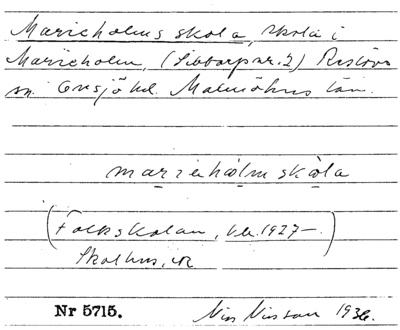 Marieholms skola, skola i
Marieholm, (Sibbarp nr. 2)
sn. Onsjö hd. Malmöhus län.
marieholm skola
(Folkskolan, 1927–)
Skolhus,
Nr 5715.
Nils Nilsson 1936.